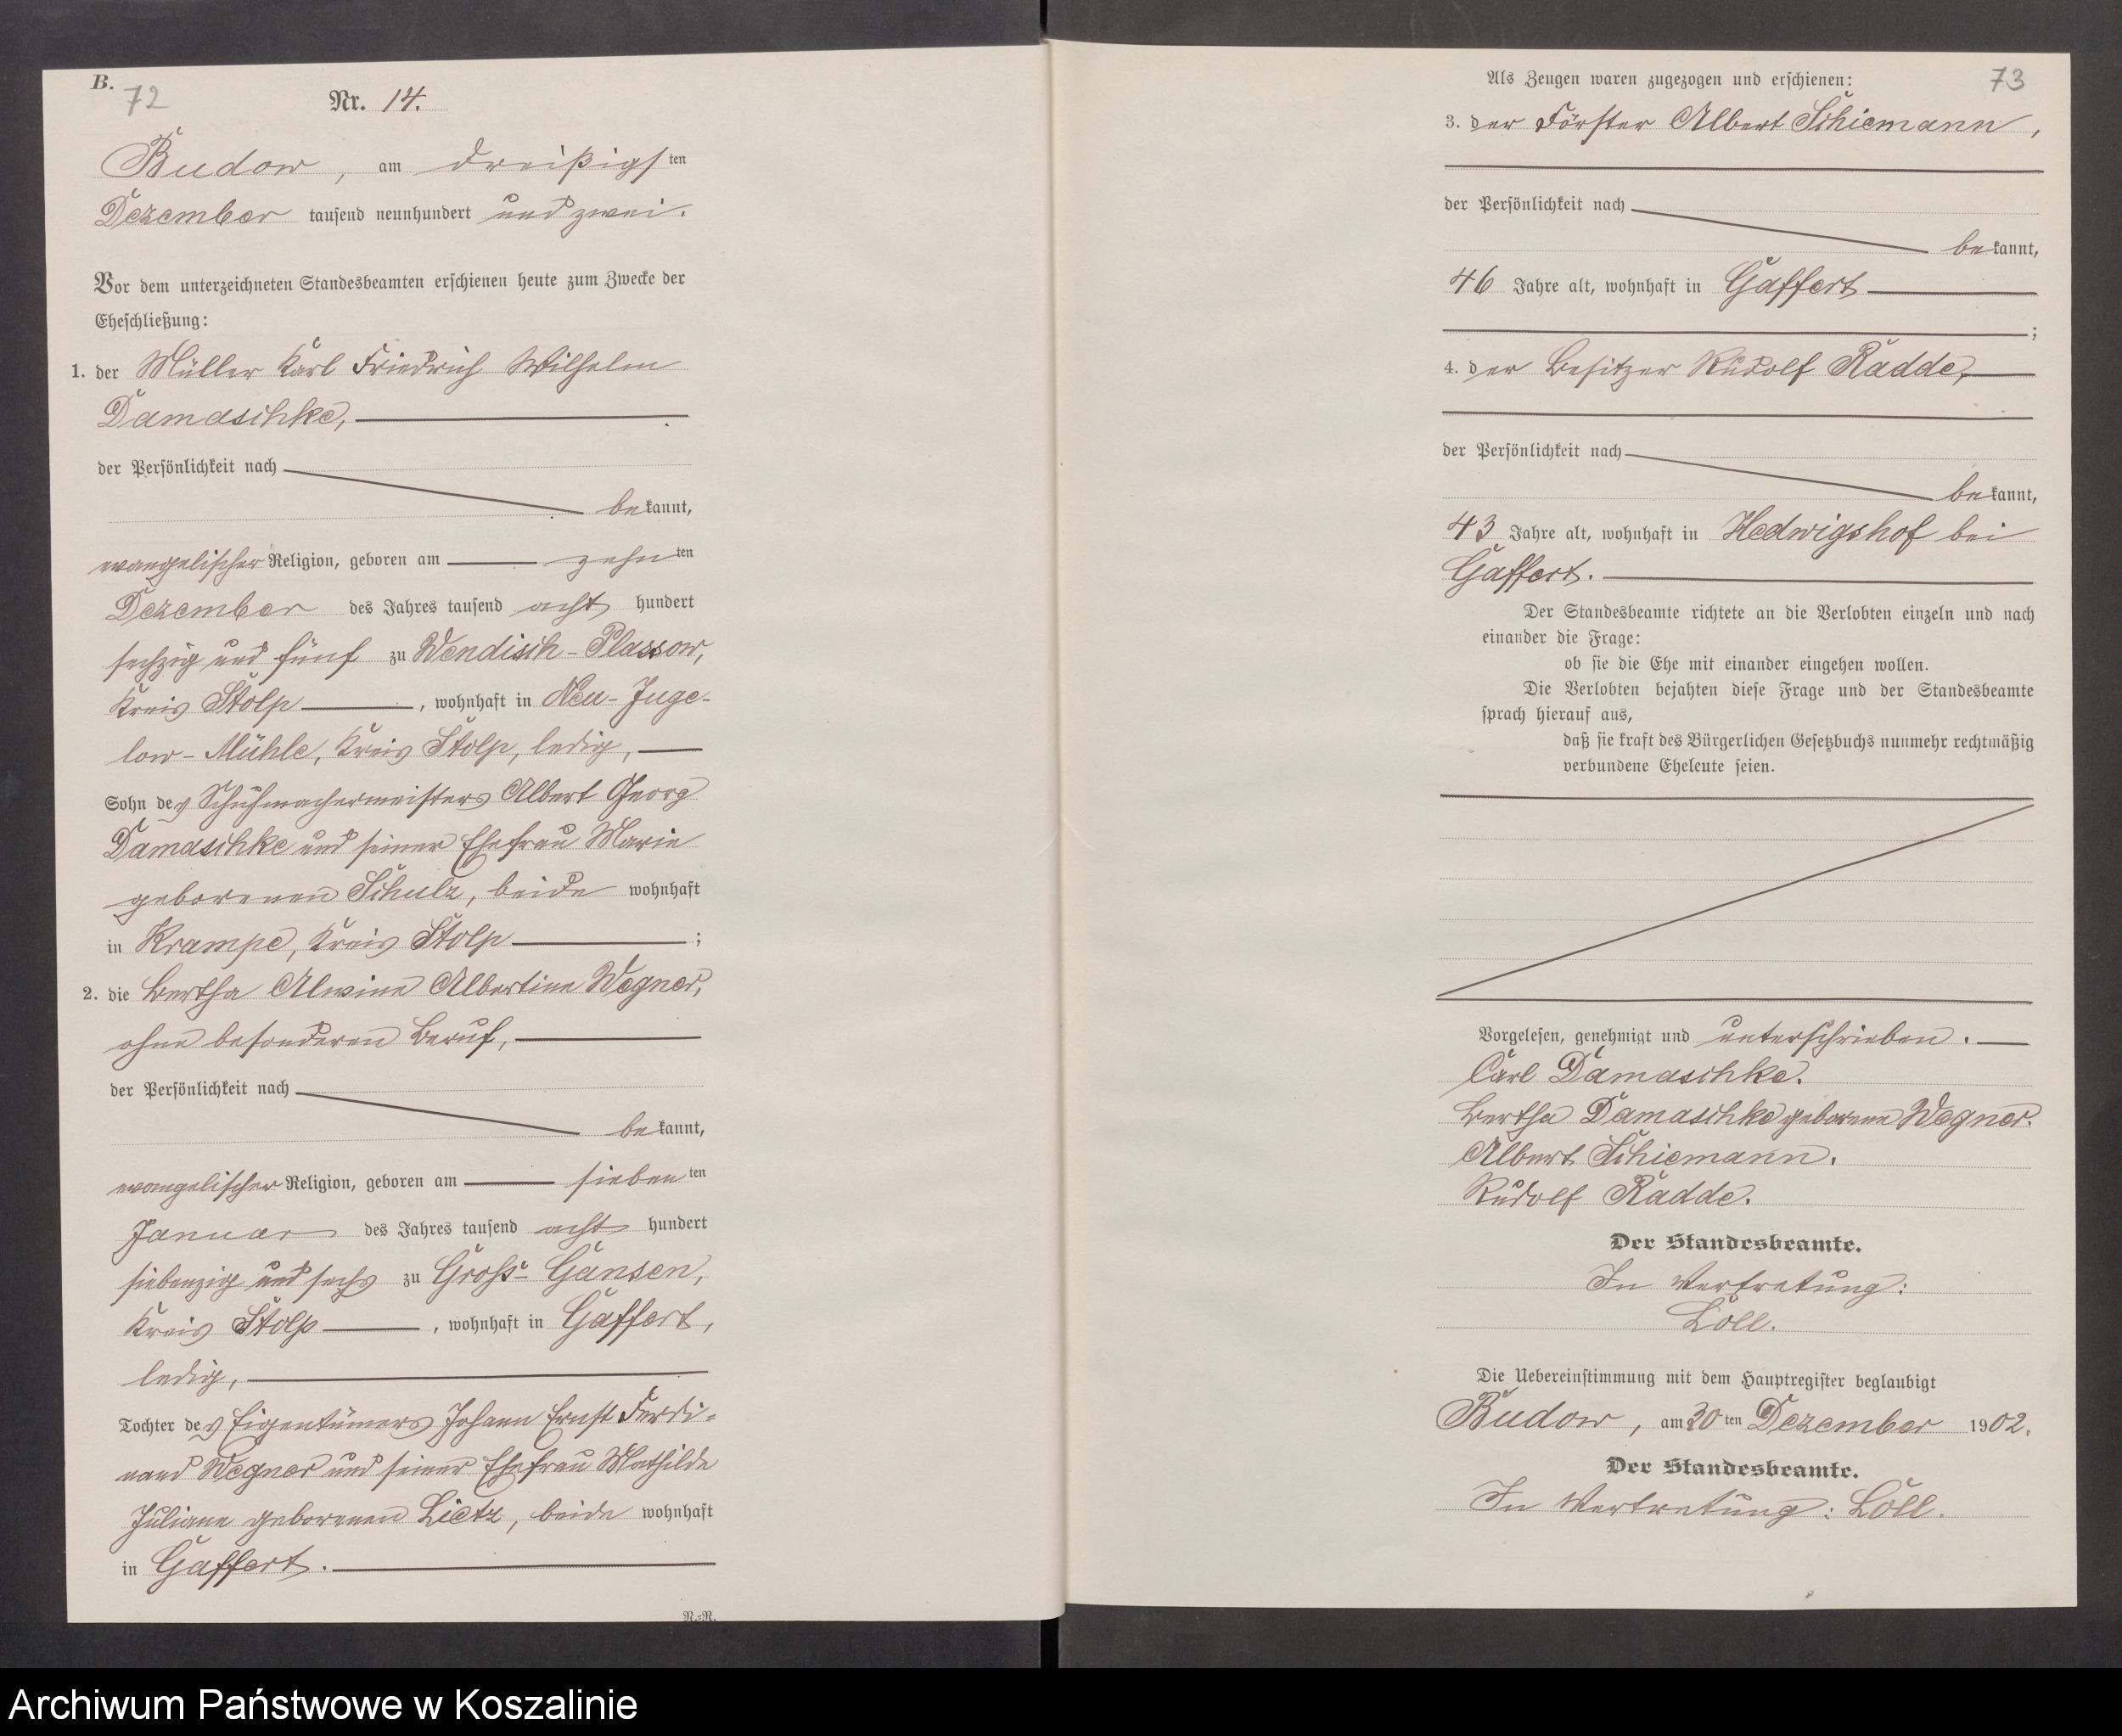 B.
72
Nr. 14.
Budow, am dreißigsten
Dezember tausend neunhundert und zwei.
Vor dem unterzeichneten Standesbeamten erschienen heute zum Zwecke der
Eheschließung:
1. der Müller Karl Friedrich Wilhelm
Damaschke,
der Persönlichkeit nach
bekannt,
evangelischer Religion, geboren am zehnten
Dezember des Jahres tausend acht hundert
sechzig und fünf zu Wendisch-Plassow,
Kreis Stolp, wohnhaft in Neu-Juge-
low-Mühle, Kreis Stolp, ledig,
Sohn des Schuhmachermeisters Albert Georg
Damaschke und seiner Ehefrau Marie
geborenen Schulz, beide wohnhaft
in Krampe, Kreis Stolp;
2. die Bertha Alwine Albertine Wegner,
ohne besonderen Beruf,
der Persönlichkeit nach
bekannt,
evangelischer Religion, geboren am siebenten
Januar des Jahres tausend acht hundert
siebenzig und sechs zu Groß-Gansen,
Kreis Stolp, wohnhaft in Gaffert,
ledig,
Tochter des Eigentümers Johann Ernst Ferdi=
nand Wegner und seiner Ehefrau Mathilde
Juliane geborenen Lietz, beide wohnhaft
in Gaffert.
N.=R.
73
Als Zeugen waren zugezogen und erschienen:
3. der Förster Albert Schiemann,
der Persönlichkeit nach
bekannt,
46 Jahre alt, wohnhaft in Gaffert
;
4. der Besitzer Rudolf Radde,
der Persönlichkeit nach
bekannt,
43 Jahre alt, wohnhaft in Hedwigshof bei
Gaffert.
Der Standesbeamte richtete an die Verlobten einzeln und nach
einander die Frage:
ob sie die Ehe mit einander eingehen wollen.
Die Verlobten bejahten diese Frage und der Standesbeamte
sprach hierauf aus,
daß sie kraft des Bürgerlichen Gesetzbuchs nunmehr rechtmäßig
verbundene Eheleute seien.
Vorgelesen, genehmigt und unterschrieben.
Carl Damaschke.
Bertha Damaschke geborene Wegner.
Albert Schiemann.
Rudolf Radde.
Der Standesbeamte.
In Vertretung:
Löll.
Die Uebereinstimmung mit dem Hauptregister beglaubigt
Budow, am 30ten Dezember 1902.
Der Standesbeamte.
In Vertretung: Löll.
Archiwum Państwowe w Koszalinie